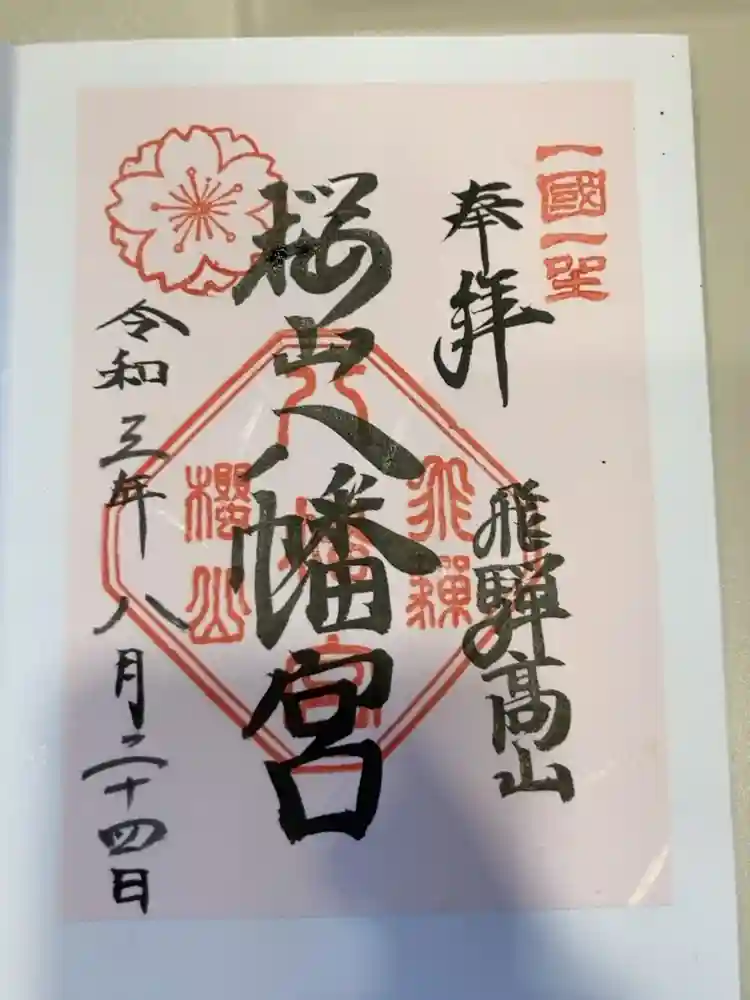 一國一社
奉拝
飛騨高山
飛騨
八幡宮
櫻山
桜山八幡宮
令和三年八月二十四日